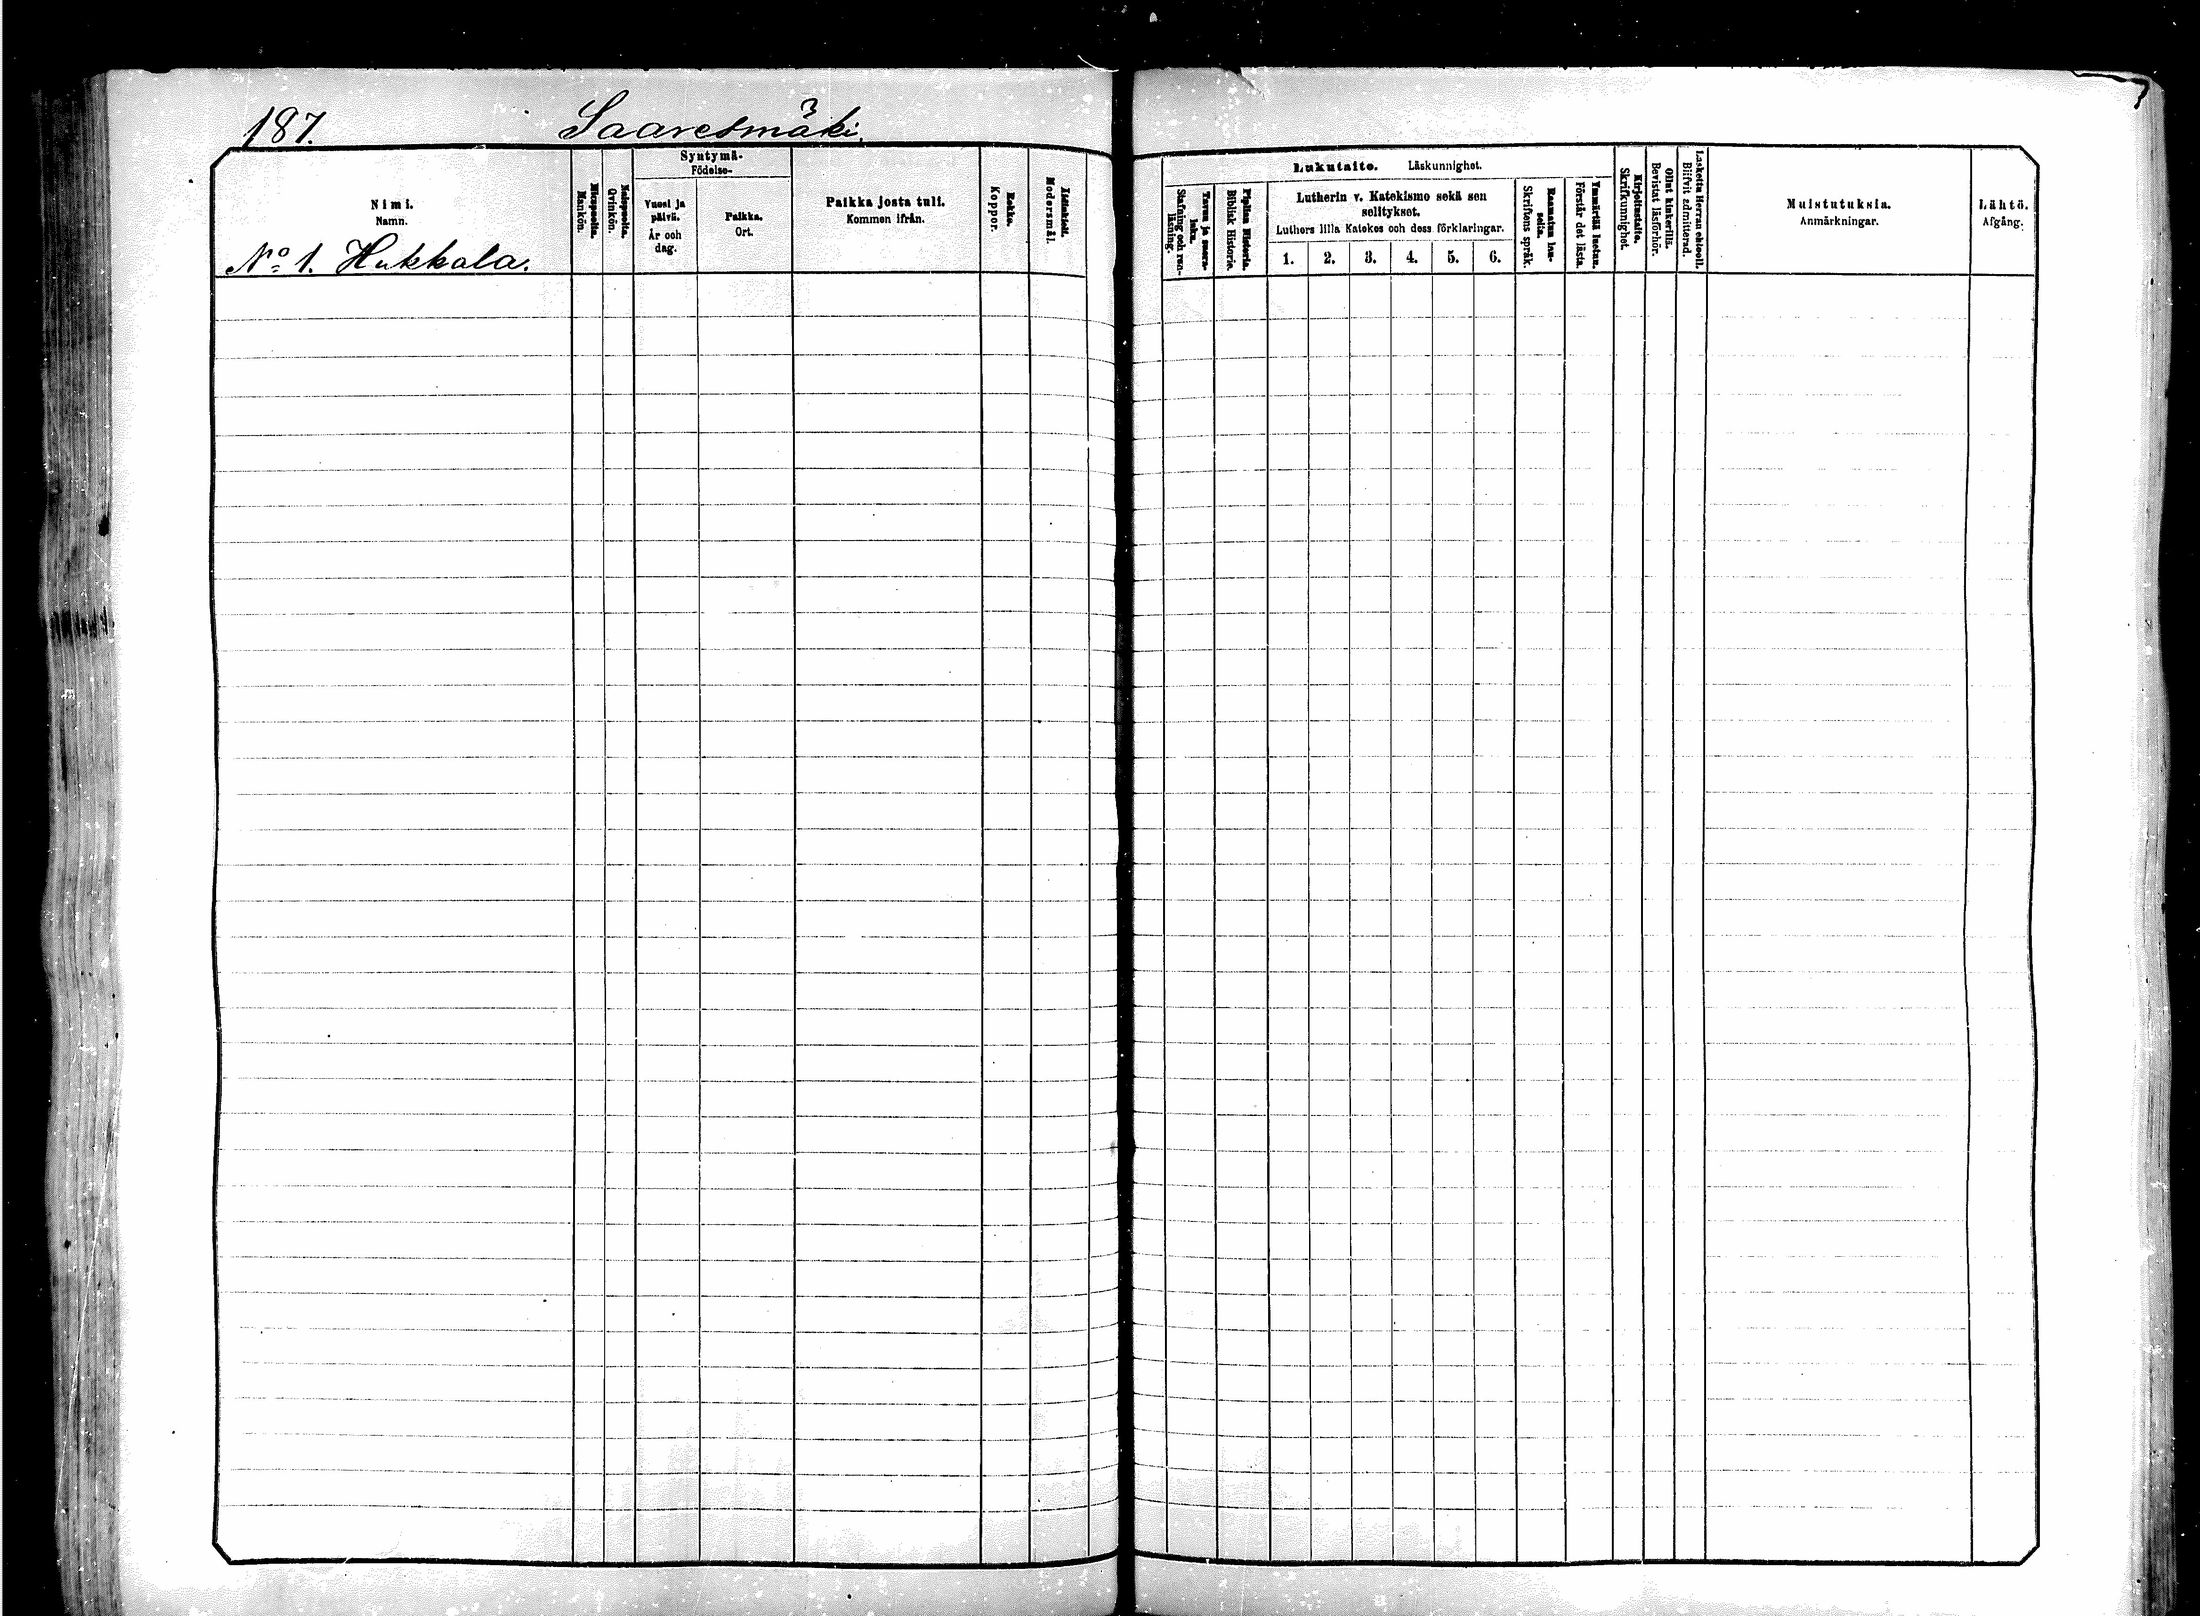 187.
Saaresmäki.
Nimi.
Namn.
Nº 1. Hukkala.
Miespuolia.
Mankön.
Naispuolia.
Qvinkön.
Syntymä-
Födelse-
Vuosi ja
päivä.
År och
dag.
Paikka.
Ort.
Paikka josta tuli.
Kommen ifrån.
Rokko.
Koppor.
Äidinkieli.
Modersmål.
Lukutaito. Läskunnighet.
Tavuu ja suora-
luku.
Stafning och ren-
läsning.
Piplian Historia.
Biblisk Historie.
Lutherin v. Katekismo sekä sen
selitykset.
Luthers lilla Katekes och dess förklaringar.
1. 2. 3. 4. 5. 6.
Raamatun lau-
seita.
Skriftens språk.
Ymmärtää luetun.
Förstår det lästa.
Kirjoitustaito.
Skrifkunnighet.
Ollut kinkerillä.
Bevistat läsförhör.
Laskettu Herran ehtooll.
Blifvit admitterad.
Muistutuksia.
Anmärkningar.
Lähtö.
Afgång.